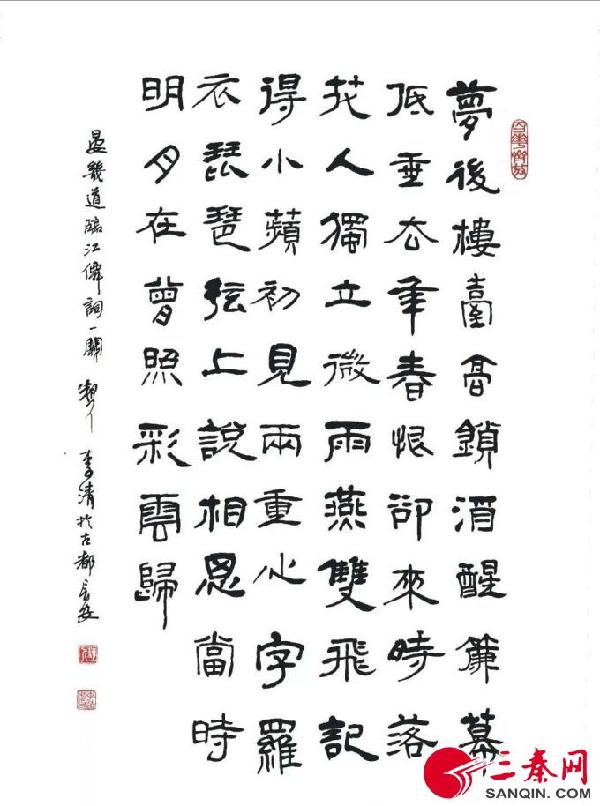 夢後樓臺高鎖酒醒簾幕
低垂去年春恨卻來時落
花人獨立微雨燕雙飛記
得小蘋初見兩重心字羅
衣琵琶弦上說相思當時
明月在曾照彩雲歸
晏幾道臨江僊詞一闋 李清於古都長安
三秦网
SANQIN.COM